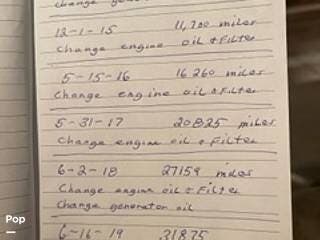 change
12-1-15 11,700 miles
change engine oil & Filter
5-15-16 16260 miles
Change engine oil & Filter
5-31-17 20825 miles
Change engine oil & Filter
6-2-18 27159 miles
Change engine oil & Filter
Change generator oil
6-16-19 31875
Pop